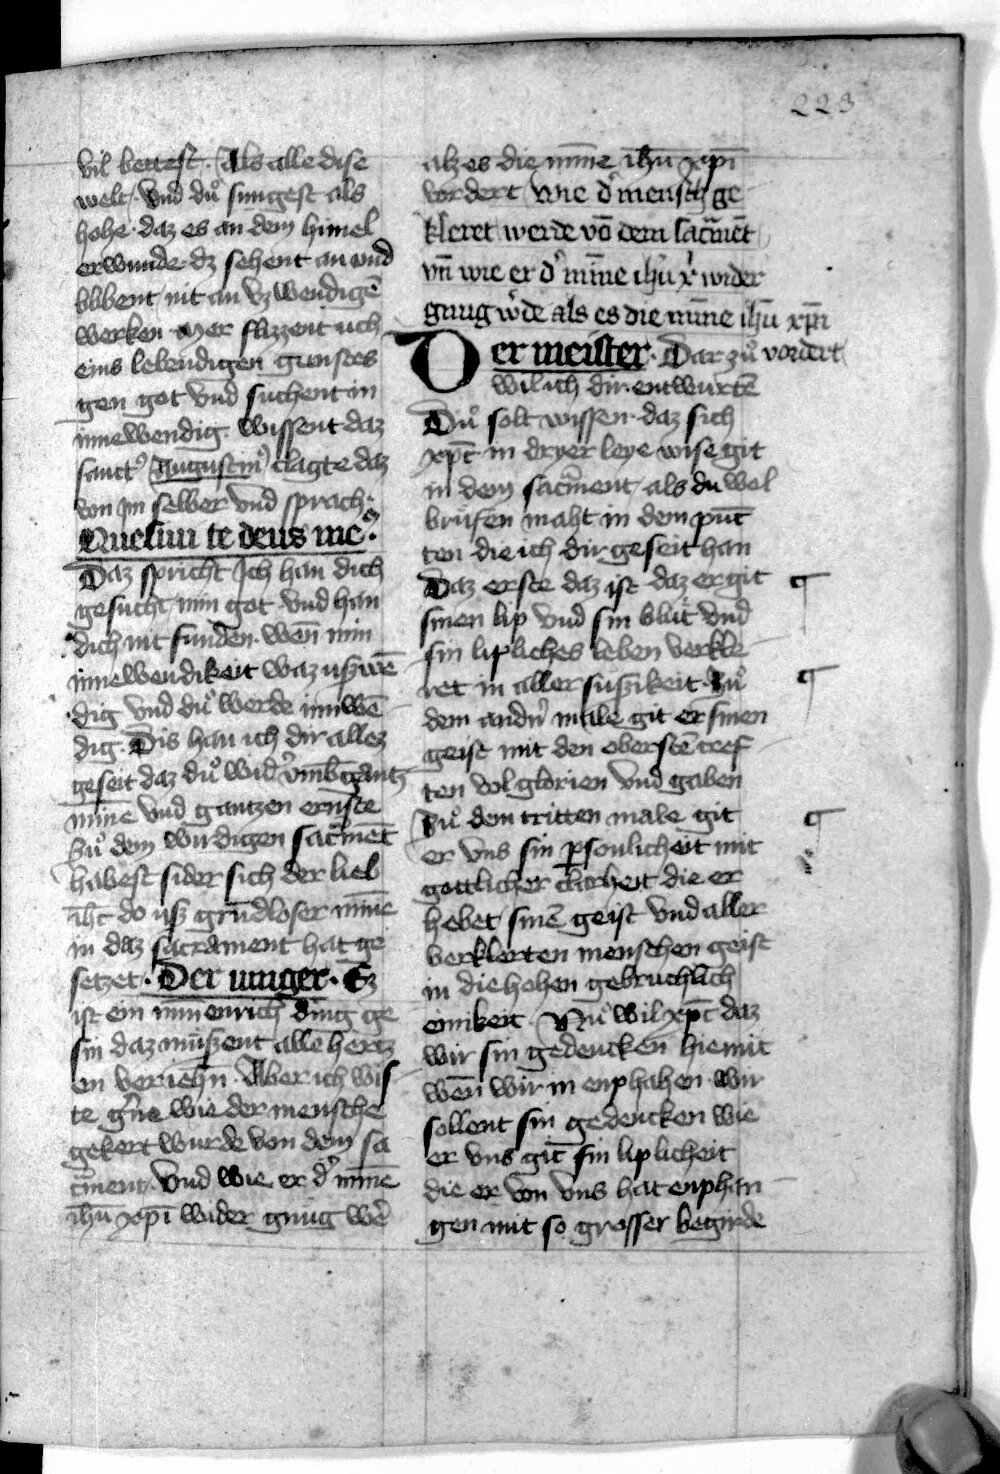 223
vil bettest · Als alle dise
welt · vnd duͦ singest als
hohe · daz es an dem himel
erwinde dz sehent an vnd
blibent nit an vzwendigē
werken · Mer flizzent uch
eins lebendigen gunstes
gen got vnd suchent in
innewendig · Wissent daz
sanctꝰ Augustinꝰ clagte daz
von im selber vnd sprach ·
Quesiui te deus meꝰ ·
Daz spricht Ich han dich
gesucht min got vnd han
dich nit funden · wen̄ min
innewendikeit waz uszwē
dig vnd duͦ werde innwē
dig · Dis han ich dir allez
geseit daz duͦ
min̄e vnd gantzen ernste
zuͦ dem wirdigen sacm̄ēt
habest sider sich der lieb
ih̄c do usz grūdloser min̄e
in daz sacrament hat ge
setzet · Der iunger · Ez
ist ein min̄enrich ding ge
sin daz muͤszent alle hertz
en veriehn̄ · Aber ich wis
te gn̄e wie der mensche
gekert wurde von dem sa
cm̄ent · Vnd wie er dˀ min̄e
ih̄u xpī wider gnuͦg wˀe
alz es die min̄e ih̄u xpī
vordert wie dˀ mensch ge
kleret werde vō dem sacm̄ēt
vn̄ wie er dˀ min̄e ih̄u xˀ wider
gnug wˀde als es die min̄e ih̄u xp̄i
Der meister · Dar zuͦ vordert
wil ich dir entwurtē
Duͦ solt wissen · daz sich
xpc̄ in dryer leye wise git
in dem sacm̄ent · als du wol
bruͤfen maht in dem pun̄c
ten die ich dir geseit han
Daz erste daz ist daz er git
sinen lip vnd sin bluͦt vnd
sin lipliches leben verkle
ret in aller suszikeit · Zuͦ
dem andn̄ male git er sinen
geist mit den oberstē cref
ten vol glorien vnd gaben
Zuͦ dem tritten male git
er vns sin ꝑsonlicheit mit
gottlicher clarheit die er
hebet sinē geist vnd aller
verklerten menschen geist
in die hohen gebruchlich
einikeit · Nuͦ wil xpc̄ daz
wir sin gedencken hie mit
wen̄ wir in enphahen wir
sollent sin gedencken wie
er vns git sin liplicheit
die er von vns hat enphan
gen mit so grosser begirde